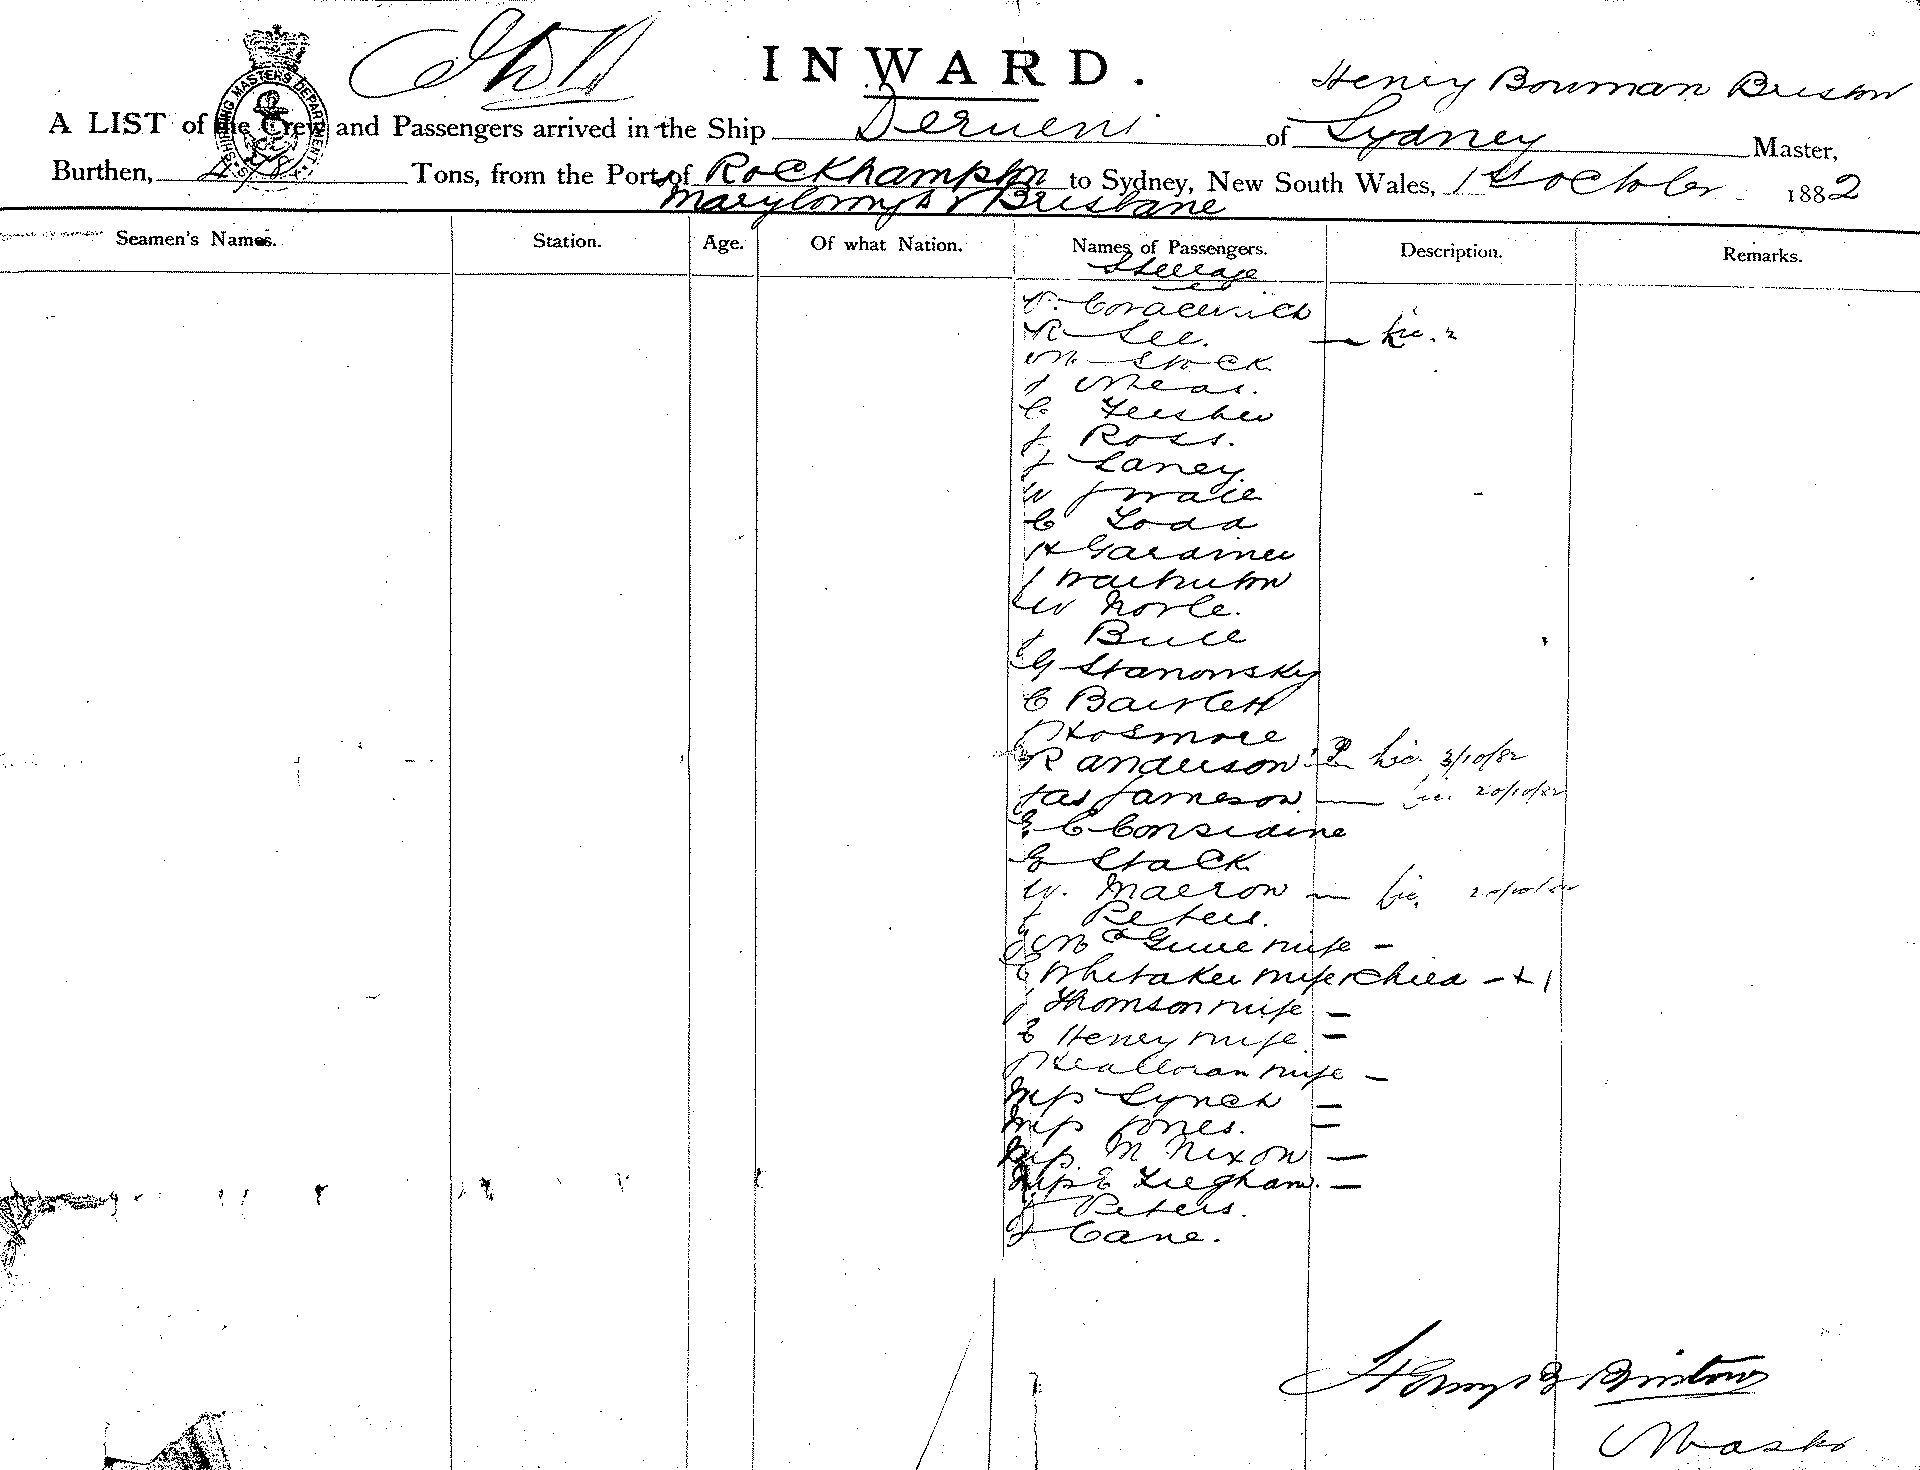 INWARD.
Henry Bowman Bristow
A LIST of the Crew and Passengers arrived in the Ship Derwent of Sydney Master,
Burthen, 478 Tons, from the Port of Rockhampton to Sydney, New South Wales, 14 October 1882
Maryborough & Brisbane
Seamen's Names. Station. Age. Of what Nation. Names of Passengers. Description. Remarks.
Steerage
R Lee.
M Stock
J Meas.
C Fersher
J Ross.
J Laney
W Swale
C Todd
H Gardiner
J Warburton
W Noble.
J Bull
G Stanowsky
C Bartlett
Hosmore
R Anderson 3/10/82
Jas Jameson 20/10/82
E C Considine
G Stack
W. Marron
J Peters.
J McGuire wife -
E Whitaker wife & child - + 1
J Thomson wife -
E Henry wife -
J Healloran wife -
Mrs Lynch -
Mrs Jones. -
Mrs M Nixon -
Mrs E Tregham. -
J Peters.
J Cane.
Henry B Bristow
Master